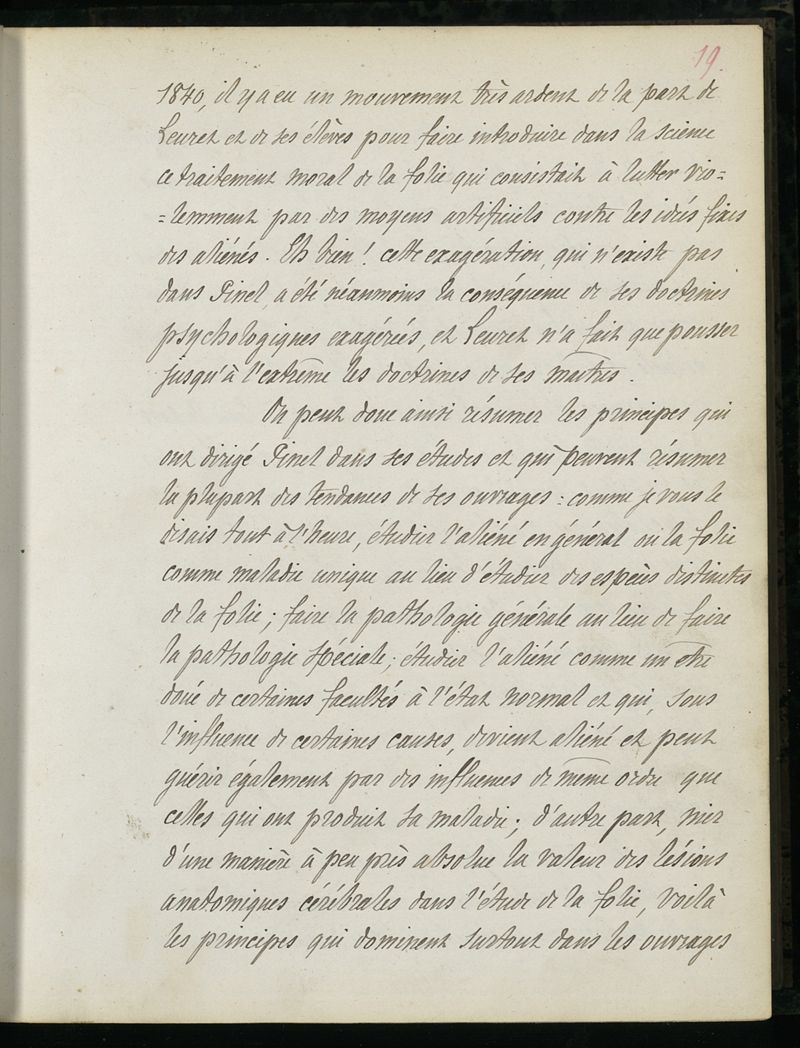 19
1840, il y a eu un mouvement très ardent de la part de
Leuret et de ses élèves pour faire introduire dans la science
ce traitement moral de la folie qui consistait à lutter vio=
=lemment par des moyens artificiels contre les idées fixes
des aliénés. Eh bien! cette exagération, qui n'existe pas
dans Pinel, a été néanmoins la conséquence de ses doctrines
psychologiques exagérées, et Leuret n'a fait que pousser
jusqu'à l'extrême les doctrines de ses maîtres.
On peut donc ainsi résumer les principes qui
ont dirigé Pinel dans ses études et qui peuvent résumer
la plupart des tendances de ses ouvrages : comme je vous le
disais tout à l'heure, étudier l'aliéné en général ou la folie
comme maladie unique au lieu d'étudier des espèces distinctes
de la folie ; faire la pathologie générale au lieu de faire
la pathologie spéciale ; étudier l'aliéné comme un être
doué de certaines facultés à l'état normal et qui, sous
l'influence de certaines causes, devient aliéné et peut
guérir également par des influences de même ordre que
celles qui ont produit sa maladie ; d'autre part, nier
d'une manière à peu près absolue la valeur des lésions
anatomiques cérébrales dans l'étude de la folie, voilà
les principes qui dominent surtout dans les ouvrages